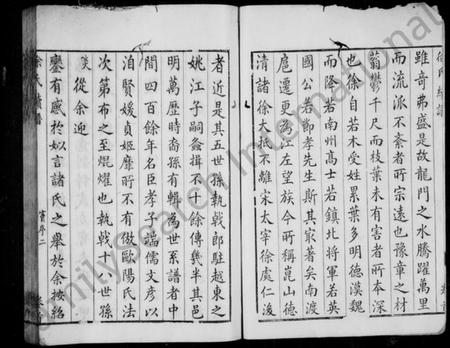 徐氏
雖奇弗盛是故龍門之水騰躍萬里
而流派不紊者所宗遠也豫章之材
蓊鬱千尺而枝葉未有害者所本深
也徐自若木受姓累葉多明德漢魏
而降若南州高士若鎮北將軍若英
國公若節孝先生斯其㝡著矣南渡
扈遷更為江左望族今所稱崑山德
清諸徐大抵不離宋太宰徐處仁後
者近是其五世孫執戟郎駐越東之
姚江子嗣弇揖不十餘傳幾半其邑
明萬歷時裔孫有輯為世系譜者中
間四百餘年名臣孝子端儒文彥以
洎賢媛貞姬靡所不有倣歐陽氏法
次第布之至焜燿也執戟十八世孫
從余迎
鑾有感於如言諸氏之舉於余按紹
familysearch International